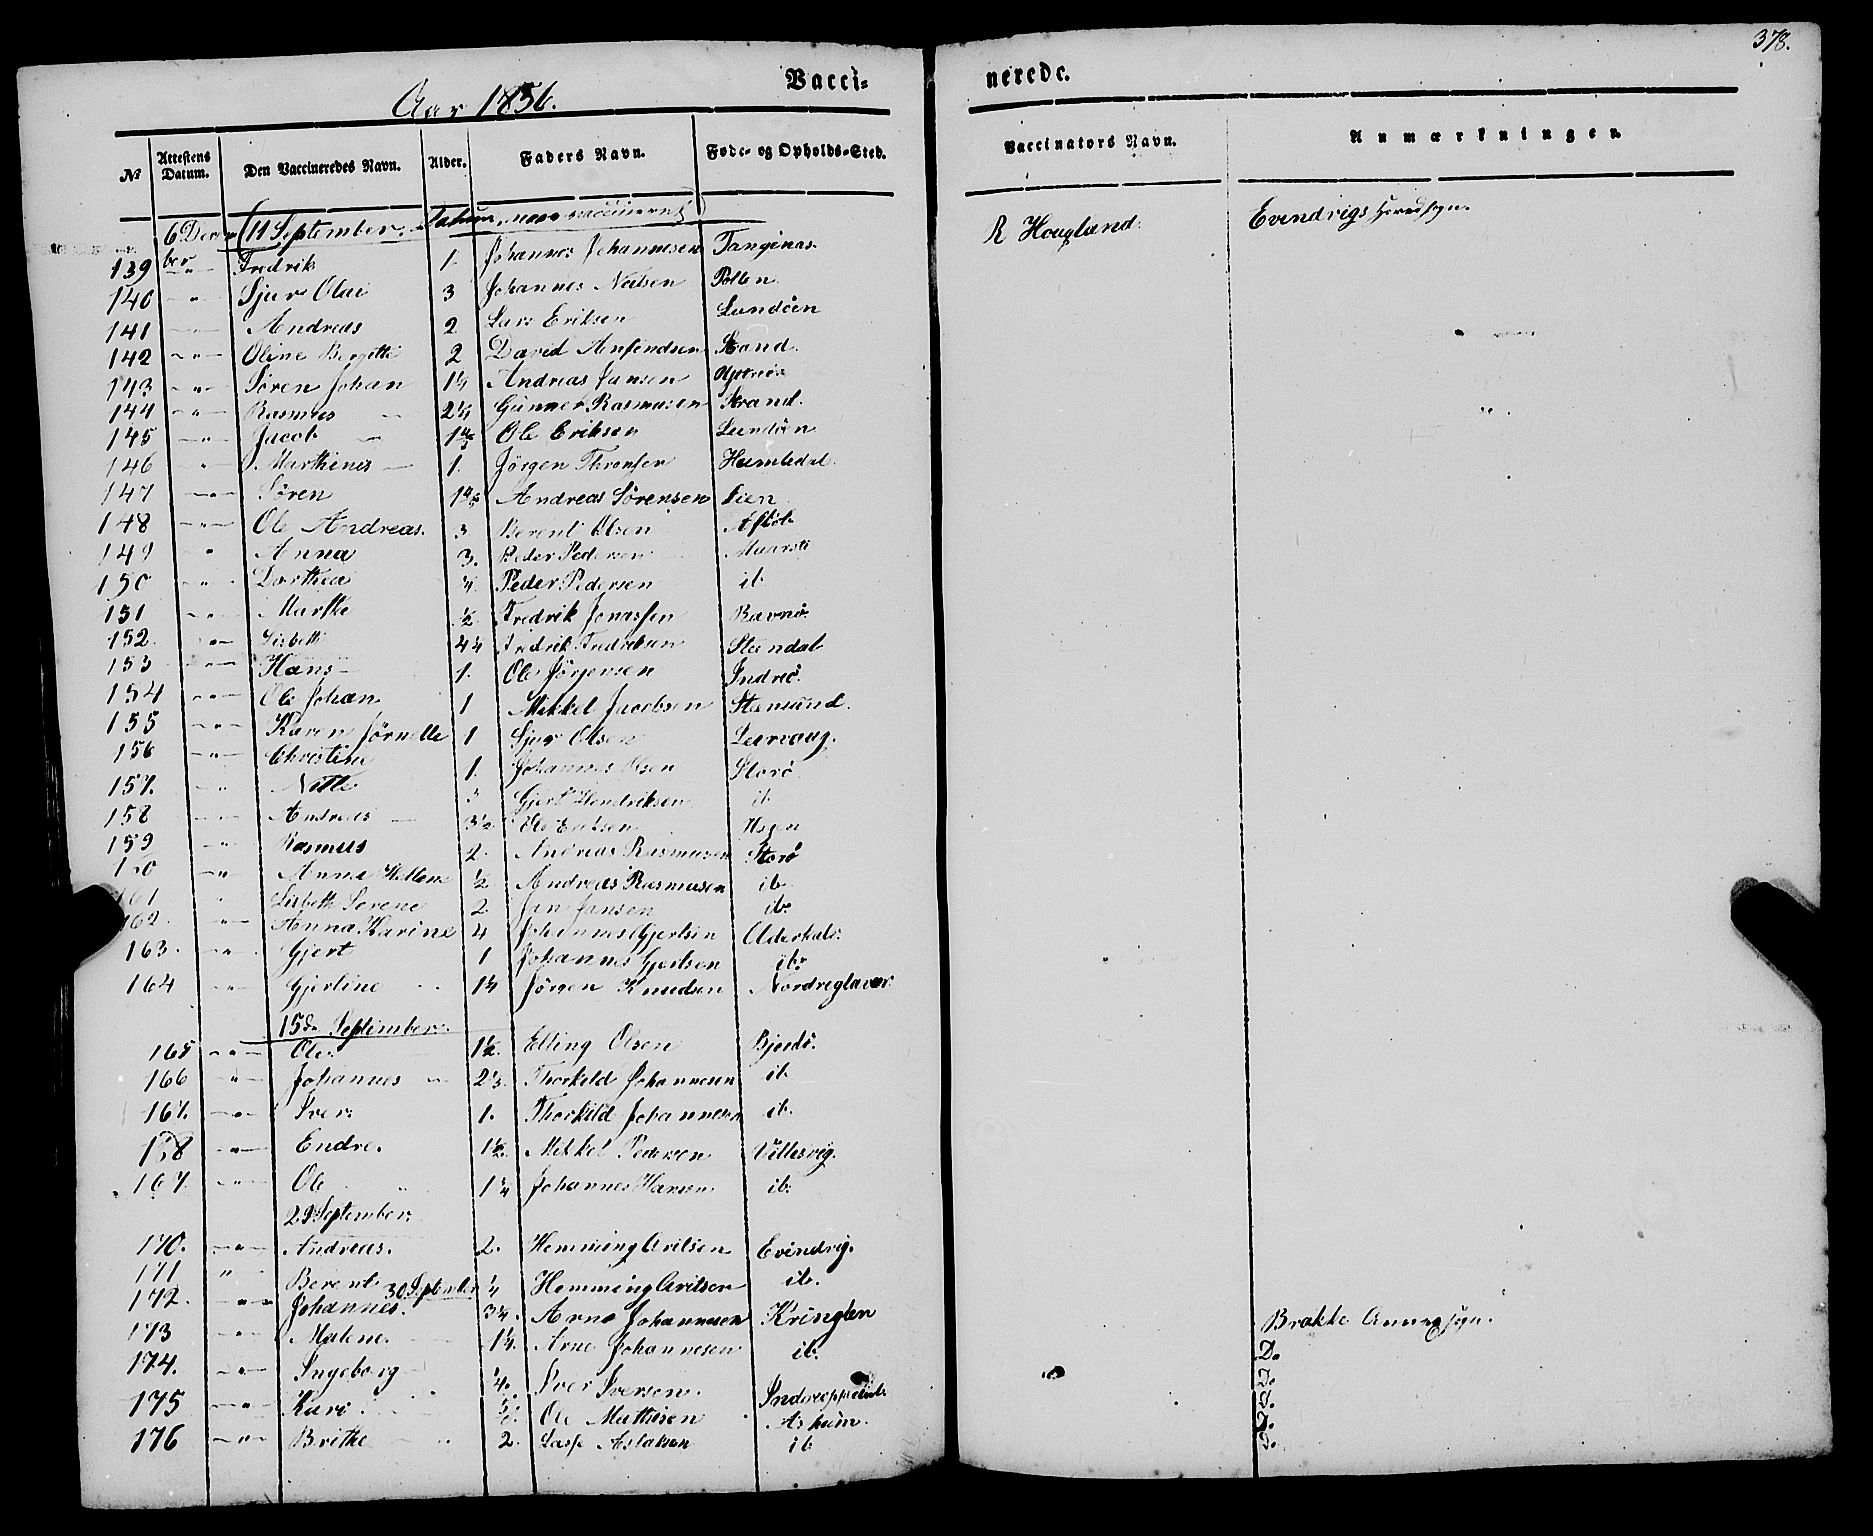 378.
Vacci-
nerede.
Aar 1856.
No Attestens Datum. Den Vaccineredes Navn. Alder. Faders Navn. Føde- og Opholds-Sted. Vaccinators Navn. Anmærkninger.
6 Decem (11 September. R Hougland. Evindvigs
ber
139 " Fredrik 1. Johannes Johannesen Tangenas.
140 " Sjur Olai 3 Johannes Nielsen Pollen
141 Andreas 2 Lars Eriksen Lundöen
142 " Oline Bergitte 2 David Anfindsen Strand.
143 " Søren Johan 1¼ Andreas Jansen
144 " Rasmus 2¼ Gunner Rasmusen Strand.
145 " Jacob Ole Eriksen Lundöen
146 " Marthines 1. Jörgen Thronsen Humledal.
147 " Sören Andreas Sörensen Lien
148 " Ole Andreas. 3 Berent Olsen
149 " Anna 3. Peder Pedersen
150 " Dorthea ¼ Peder Pedersen ib
151 " Marthe ½ Fredrik Jonassen Ravnö.
152. " Lisbeth 4¼ Fredrik Fredriksen Steendal
153 Hans 1. Ole Jörgensen Indreö.
154 " Ole Johan 1 Mikkel Jacobsen Steensund.
155 " Karen Jörnelle 1 Sjur Olsen Leervaag.
156 " Christine 1. Johannes Olsen Storö
157. " Nille 3 Gjert Hendriksen ib
158 Andreas 3½ Ole Eriksen Hagen
159 " Rasmus 2. Andreas Rasmusen Storö
160 " Anna Hellene ½ Andreas Rasmusen ib
161 " Lisbeth Serene 2. Jan Jansen ib.
162. " Anna Karine 4 Johannes Gjertsen
163. " Gjert 1 Johannes Gjertsen ib.
164 " Gjerline 1¼ Jörgen Knudsen Nordreglavær
15de September.
165 " Ole. 1½. Elling Olsen Bjordö.
166 " Johannes 2⅓. Thorkild Johannesen ib
167. " Iver. 1. Thorkild Johannesen ib.
168 " Endre. 1½. Mikkel Pedersen Villesvig.
167. " Ole 1¼ Johannes Hansen ib.
29 September.
170. " Andreas. 2. Hemming Arilsen Evindvig.
171 " Berent ¼ Hemming Arilsen ib.
30 September
172. " Johannes. 3¼. Arne Johannesen Kringlen Brække Annexsogn.
173 " Malene. 1¼. Arne Johannesen ib. Do
174. " Ingeborg ¼. Iver Iversen. Do
175 " Kari. Ole Mathisen Asheim. Do
176 " Brithe 2. Lasse Aslaksen ib Do
Do